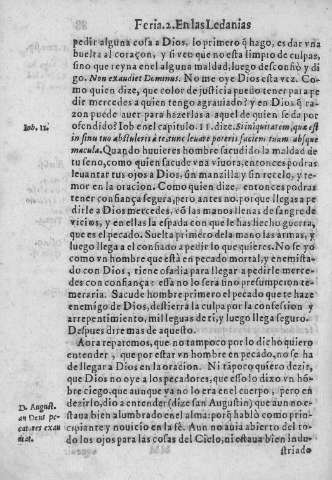 Feria.2. En las Ledanias
pedir alguna cosa a Dios, lo primero q̃ hago, es dar vna
buelta al coraçon, y si veo que no esta limpio de culpas,
sino que reyna en el alguna maldad, luego desconfio y di
go. Non exaudiet Dominus. No me oye Dios esta vez. Co-
mo quien dize, que color de justicia puedo tener para pe
dir mercedes a quien tengo agrauiado? y en Dios q̃ ra-
zon puede auer para hazerlas a aquel de quien se da por
Iob. 11.
ofendido? Iob en el capitulo. 11. dize. Si iniquitatem, quæ est
in sinu tuo abstuleris à te, tunc leuare poteris faciem tuam absque
macula. Quando huuieres hombre sacudido la maldad de
tu seno, como quien sacude vna viuora, entonces podras
leuantar tus ojos a Dios, sin manzilla y sin recelo, y te-
mor en la oracion. Como quien dize, entonces podras
tener confiança segura, pero antes no, porque llegas a pe
dirle a Dios mercedes, cõ las manos llenas de sangre de
vicios, y en ellas la espada con que le has hecho guerra,
que es el pecado. Suelta primero de la mano las armas, y
luego llega a el confiado a pedir lo que quieres. No se yo
como vn hombre que està en pecado mortal, y enemista-
do con Dios, tiene osadia para llegar a pedirle merce-
des con confiança: esta no lo sera sino presumpcion te-
meraria. Sacude hombre primero el pecado que te haze
enemigo de Dios, destierra la culpa por la confession y
arrepentimiento, mil leguas de ti, y luego llega seguro.
Despues dire mas de aquesto.
Aora reparemos, que no tampoco por lo dicho quiero
entender, que por estar vn hombre en pecado, no se ha
de llegar a Dios en la oracion. Ni tãpoco quiero dezir,
que Dios no oye a los pecadores, que esso lo dixo vn hõ-
bre ciego, que aunque ya no lo era en el cuerpo, pero en
D. August.
an Deus pe-
catores exau
diat.
dezirlo, dio a entender (dize san Augustin) que aun no e-
staua bien alumbrado en el alma: porq̃ hablò como prin-
cipiante y nouicio en la fè. Aun no auia abierto del to-
do los ojos para las cosas del Cielo, ni estaua bien indu-
striado